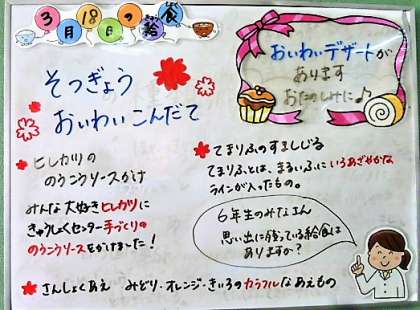 3月18日の給食
そつぎょう
おいわいこんだて
おいわいデザートが
あります
おたのしみに♪
ヒレカツの
のうこうソースがけ
みんな大好きヒレカツに
きゅうしょくセンター手づくりの
のうこうソースをかけました!
てまりふのすましじる
てまりふとは、まるいふにいろあざやかな
ラインが入ったもの。
6年生のみなさん
思い出に残っている給食は
ありますか?
さんしょくあえ みどり・オレンジ・きいろのカラフルなあえもの